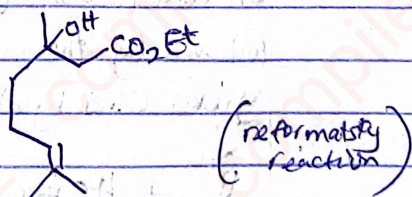 OH
CO₂Et
(reformatsky
reaction)